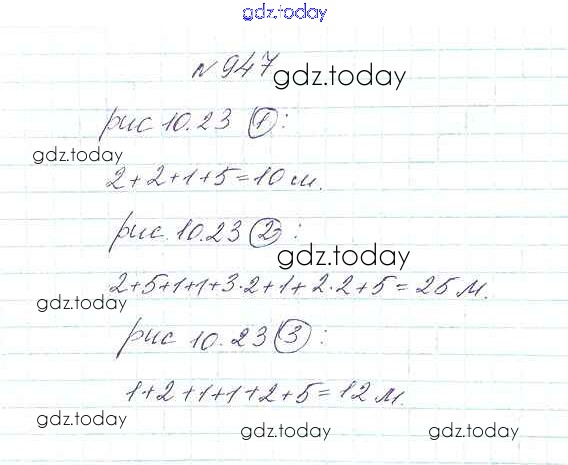 gdz.today
№947
gdz.today
рис 10.23 ①:
gdz.today
2+2+1+5=10 м.
рис. 10.23 ②:
gdz.today
2+5+1+1+3·2+1+2·2+5=25 м.
gdz.today
рис 10.23 ③:
1+2+1+1+2+5=12 м.
gdz.today
gdz.today
gdz.today